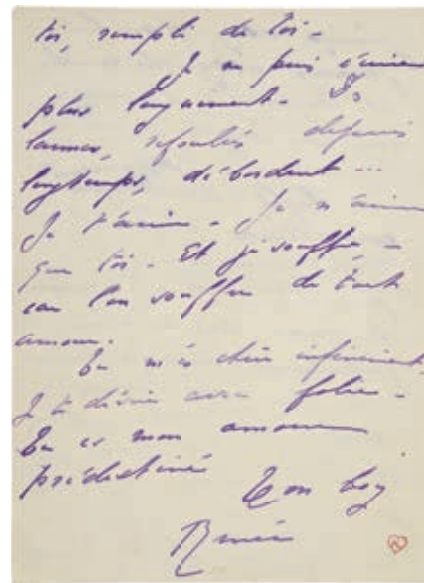 toi, rempli de toi -
Je ne puis t'écrire
plus longuement. Les
larmes, refoulées depuis
longtemps, débordent...
Je t'aime. Je n'aime
que toi. Et je souffre -
car l'on souffre de tout
amour.
Tu m'es chère infiniment,
Je te désire avec folie -
Tu es mon amour
prédestiné
Ton boy
Renée